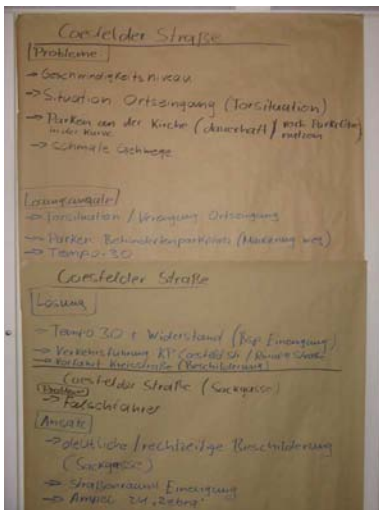 Coesfelder Straße
Probleme
→ Geschwindigkeitsniveau
→ Situation Ortseingang (Torsituation)
→ Parken an der Kirche (dauerhaft /
in der Kurve
→ schmale Gehwege
Lösungsansätze
→ Torsituation / Verengung Ortseingang
→ Parken: Behindertenparkplatz (Markierung weg)
→ Tempo-30
Coesfelder Straße
Lösung
→ Tempo 30 + Widerstand (Bsp. Einengung)
→ Verkehrsführung KP Coesfeld.
→ Vorfahrt Kreisstraße (Beschilderung)
Coesfelder Straße (Sackgasse)
Problem
→ Falschfahrer
Ansatz
→ deutliche / rechtzeitige Beschilderung
(Sackgasse)
→ Straßenraum Einengung
→ Ampel zu "Zebra"